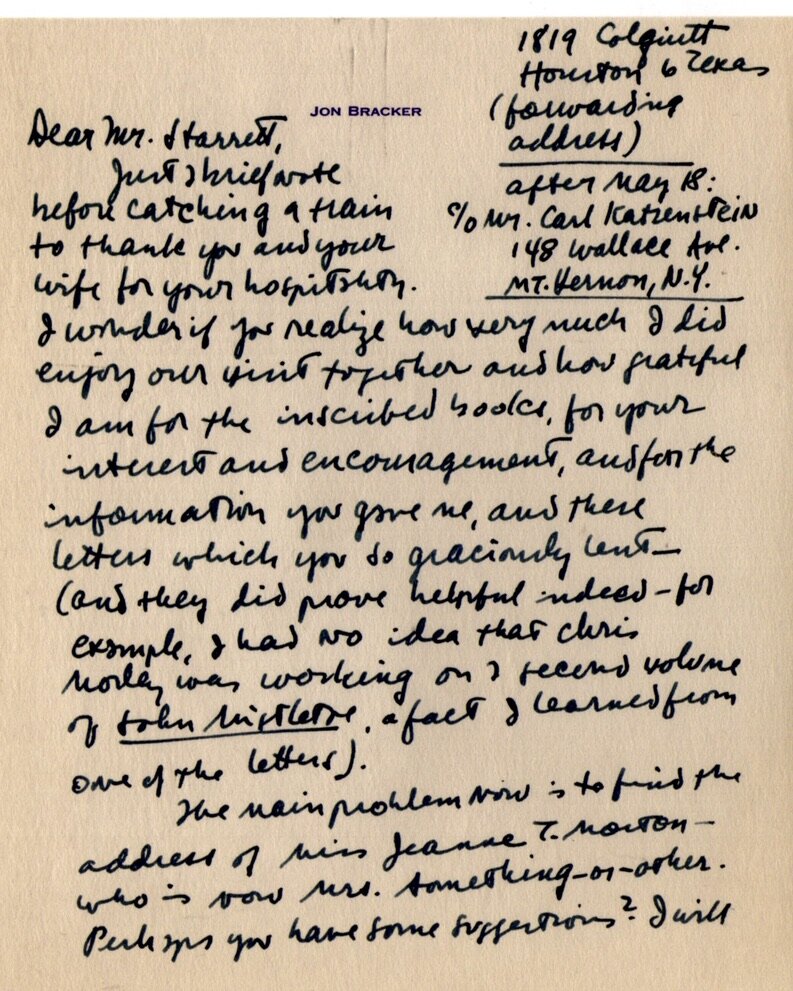 1819 Colquitt
Houston 6 Texas
(forwarding
address)
after May 18:
c/o Mr. Carl Katzenstein
148 Wallace Ave.
Mt. Vernon, N.Y.
JON BRACKER
Dear Mr. Starrett,
Just a brief note
before catching a train
to thank you and your
wife for your hospitality.
I wonder if you realize how very much I did
enjoy our visit together and how grateful
I am for the inscribed books, for your
interest and encouragement, and for the
information you gave me, and these
letters which you so graciously lent—
(and they did prove helpful indeed – for
example, I had no idea that Chris
Morley was working on a second volume
of John Mistletoe, a fact I learned from
one of the letters).
The main problem now is to find the
address of Miss Jeanne T. Morton –
who is now Mrs. Something-or-other.
Perhaps you have some suggestions? I will